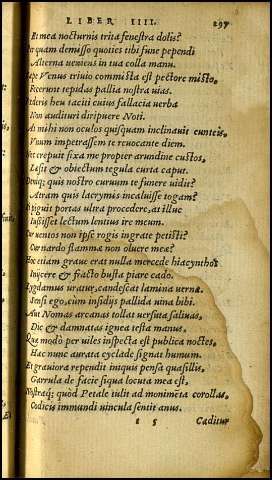 LIBER IIII. 297
Et mea nocturnis trita fenestra dolis?
quam demisso quoties tibi fune pependi
Alterna ueniens in tua colla manu.
Venus triuio commista est pectore misto,
Fecerunt tepidas pallia nostra uias.
heu taciti cuius fallacia uerba
Non audituri diripuere Noti.
At mihi non oculos quisquam inclinauit cunteis.
Vnum impetrassem te reuocante diem.
crepuit fixa me propter arundine custos,
Læsit & obiectum tegula curta caput.
quis nostro curuum te funere uidit?
Atram quis lacrymis incaluisse togam?
piguit portas ultra procedere, at illuc
Iussisses lectum lentius ire meum.
uentos non ipse rogis ingrate petisti?
Cur nardo flammæ non oluere meæ?
etiam graue erat nulla mercede hiacynthos
Iniicere & fracto busta piare cado.
Lygdamus uratur, candescat lamina uernæ.
Sensi ego, cum insidijs pallida uina bibi.
Aut Nomas arcanas tollat uersuta saliuas,
Dic & damnatas ignea testa manus.
Quæ modò per uiles inspecta est publica noctes,
Hæc nunc aurata cyclade signat humum.
Et grauiora rependit iniquis pensa quasillis,
Garrula de facie siqua locuta mea est.
Nostraq; quòd Petale tulit ad monimēta corollas,
Codicis immundi uincula sentit anus.
Caditur